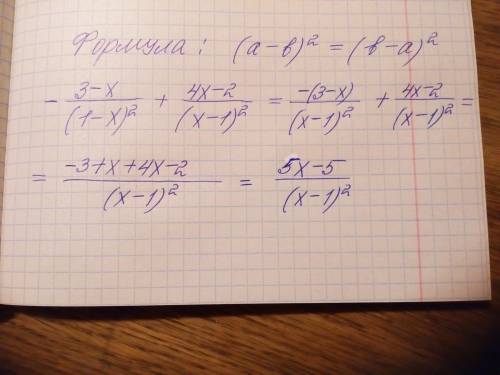 Формула: (a-в)² = (в-a)²
- (3-x)/(1-x)² + (4x-2)/(x-1)² = -(3-x)/(x-1)² + (4x-2)/(x-1)² =
= (-3+x+4x-2)/(x-1)² = (5x-5)/(x-1)²